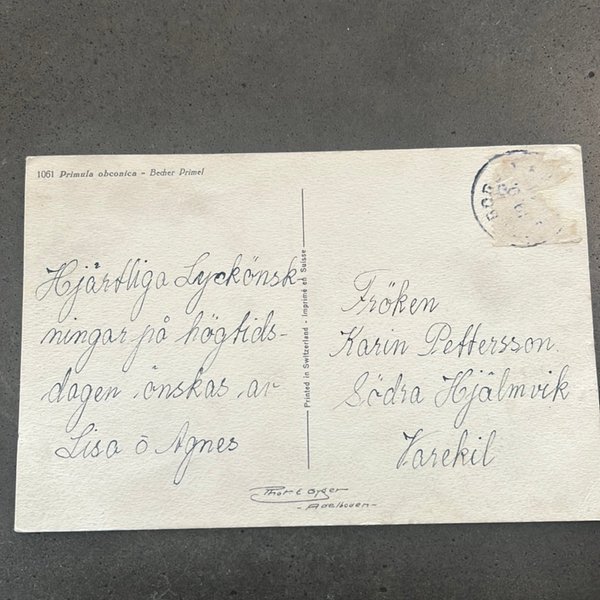 1061 Primula obconica - Becher Primel
Hjärtliga Lyckönsk-
ningar på högtids-
dagen önskas av
Lisa o Agnes
Printed in Switzerland - Imprimé en Suisse
Fröken
Karin Pettersson
Södra Hjälmvik
Varekil
Adelboden